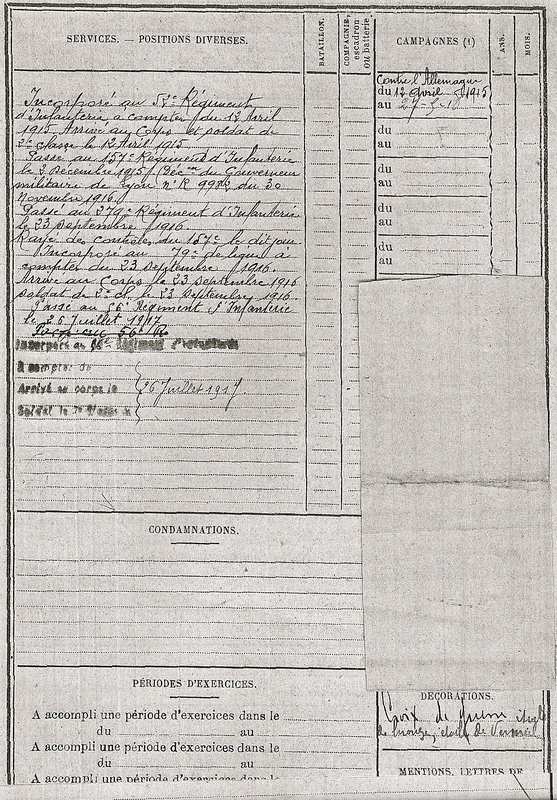 SERVICES. — POSITIONS DIVERSES.
BATAILLON.
COMPAGNIE, escadron ou batterie
CAMPAGNES (1)
ANS.
MOIS.
Contre l'Allemagne
du 12 Avril 1915
au
du
au
du
au
du
au
du
au
Incorporé au 52e Régiment
d'Infanterie, a compter du 12 Avril
1915. Arrivé au Corps et soldat de
2e classe le 12 Avril 1915
Passé au 157e Régiment d'Infanterie
le 2 Décembre 1915 du Gouverneur
militaire de Lyon n° R du 30
Novembre 1916
Passé au 279e Régiment d'Infanterie
le 23 Septembre 1916.
Rayé des contrôles du 157e le dit jour
Incorporé au 79e de ligne a
compter du 23 Septembre 1916.
Arrivé au Corps le 23 Septembre 1916
Soldat de 2e cl. le 23 Septembre 1916.
Passé au 56e Régiment d'Infanterie
le 26 Juillet 1917
56e
Incorporé au 56e Régiment d'Infanterie
A compter du
Arrivé au corps le
26 Juillet 1917.
Soldat de 2e classe
CONDAMNATIONS.
PÉRIODES D'EXERCICES.
A accompli une période d'exercices dans le
du au
A accompli une période d'exercices dans le
du au
A accompli une période d'exercices dans le
DÉCORATIONS.
Croix de guerre
étoile de
MENTIONS, LETTRES DE